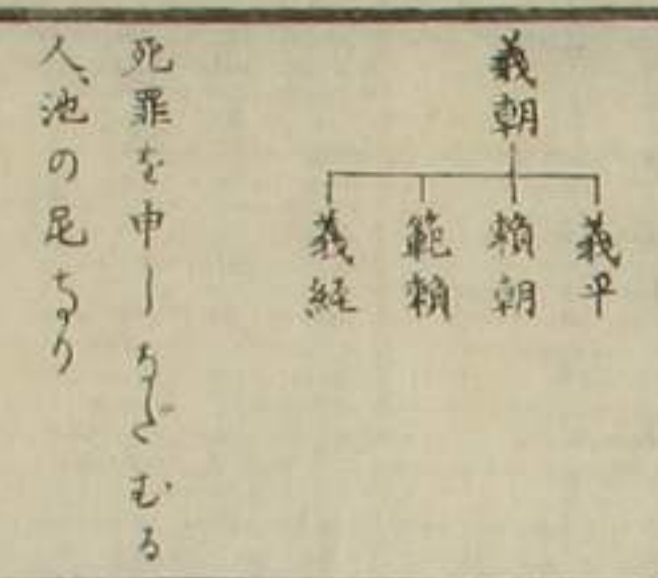 義朝
義平
頼朝
範頼
義純
死罪を申しなだむる
人、池の尼なり